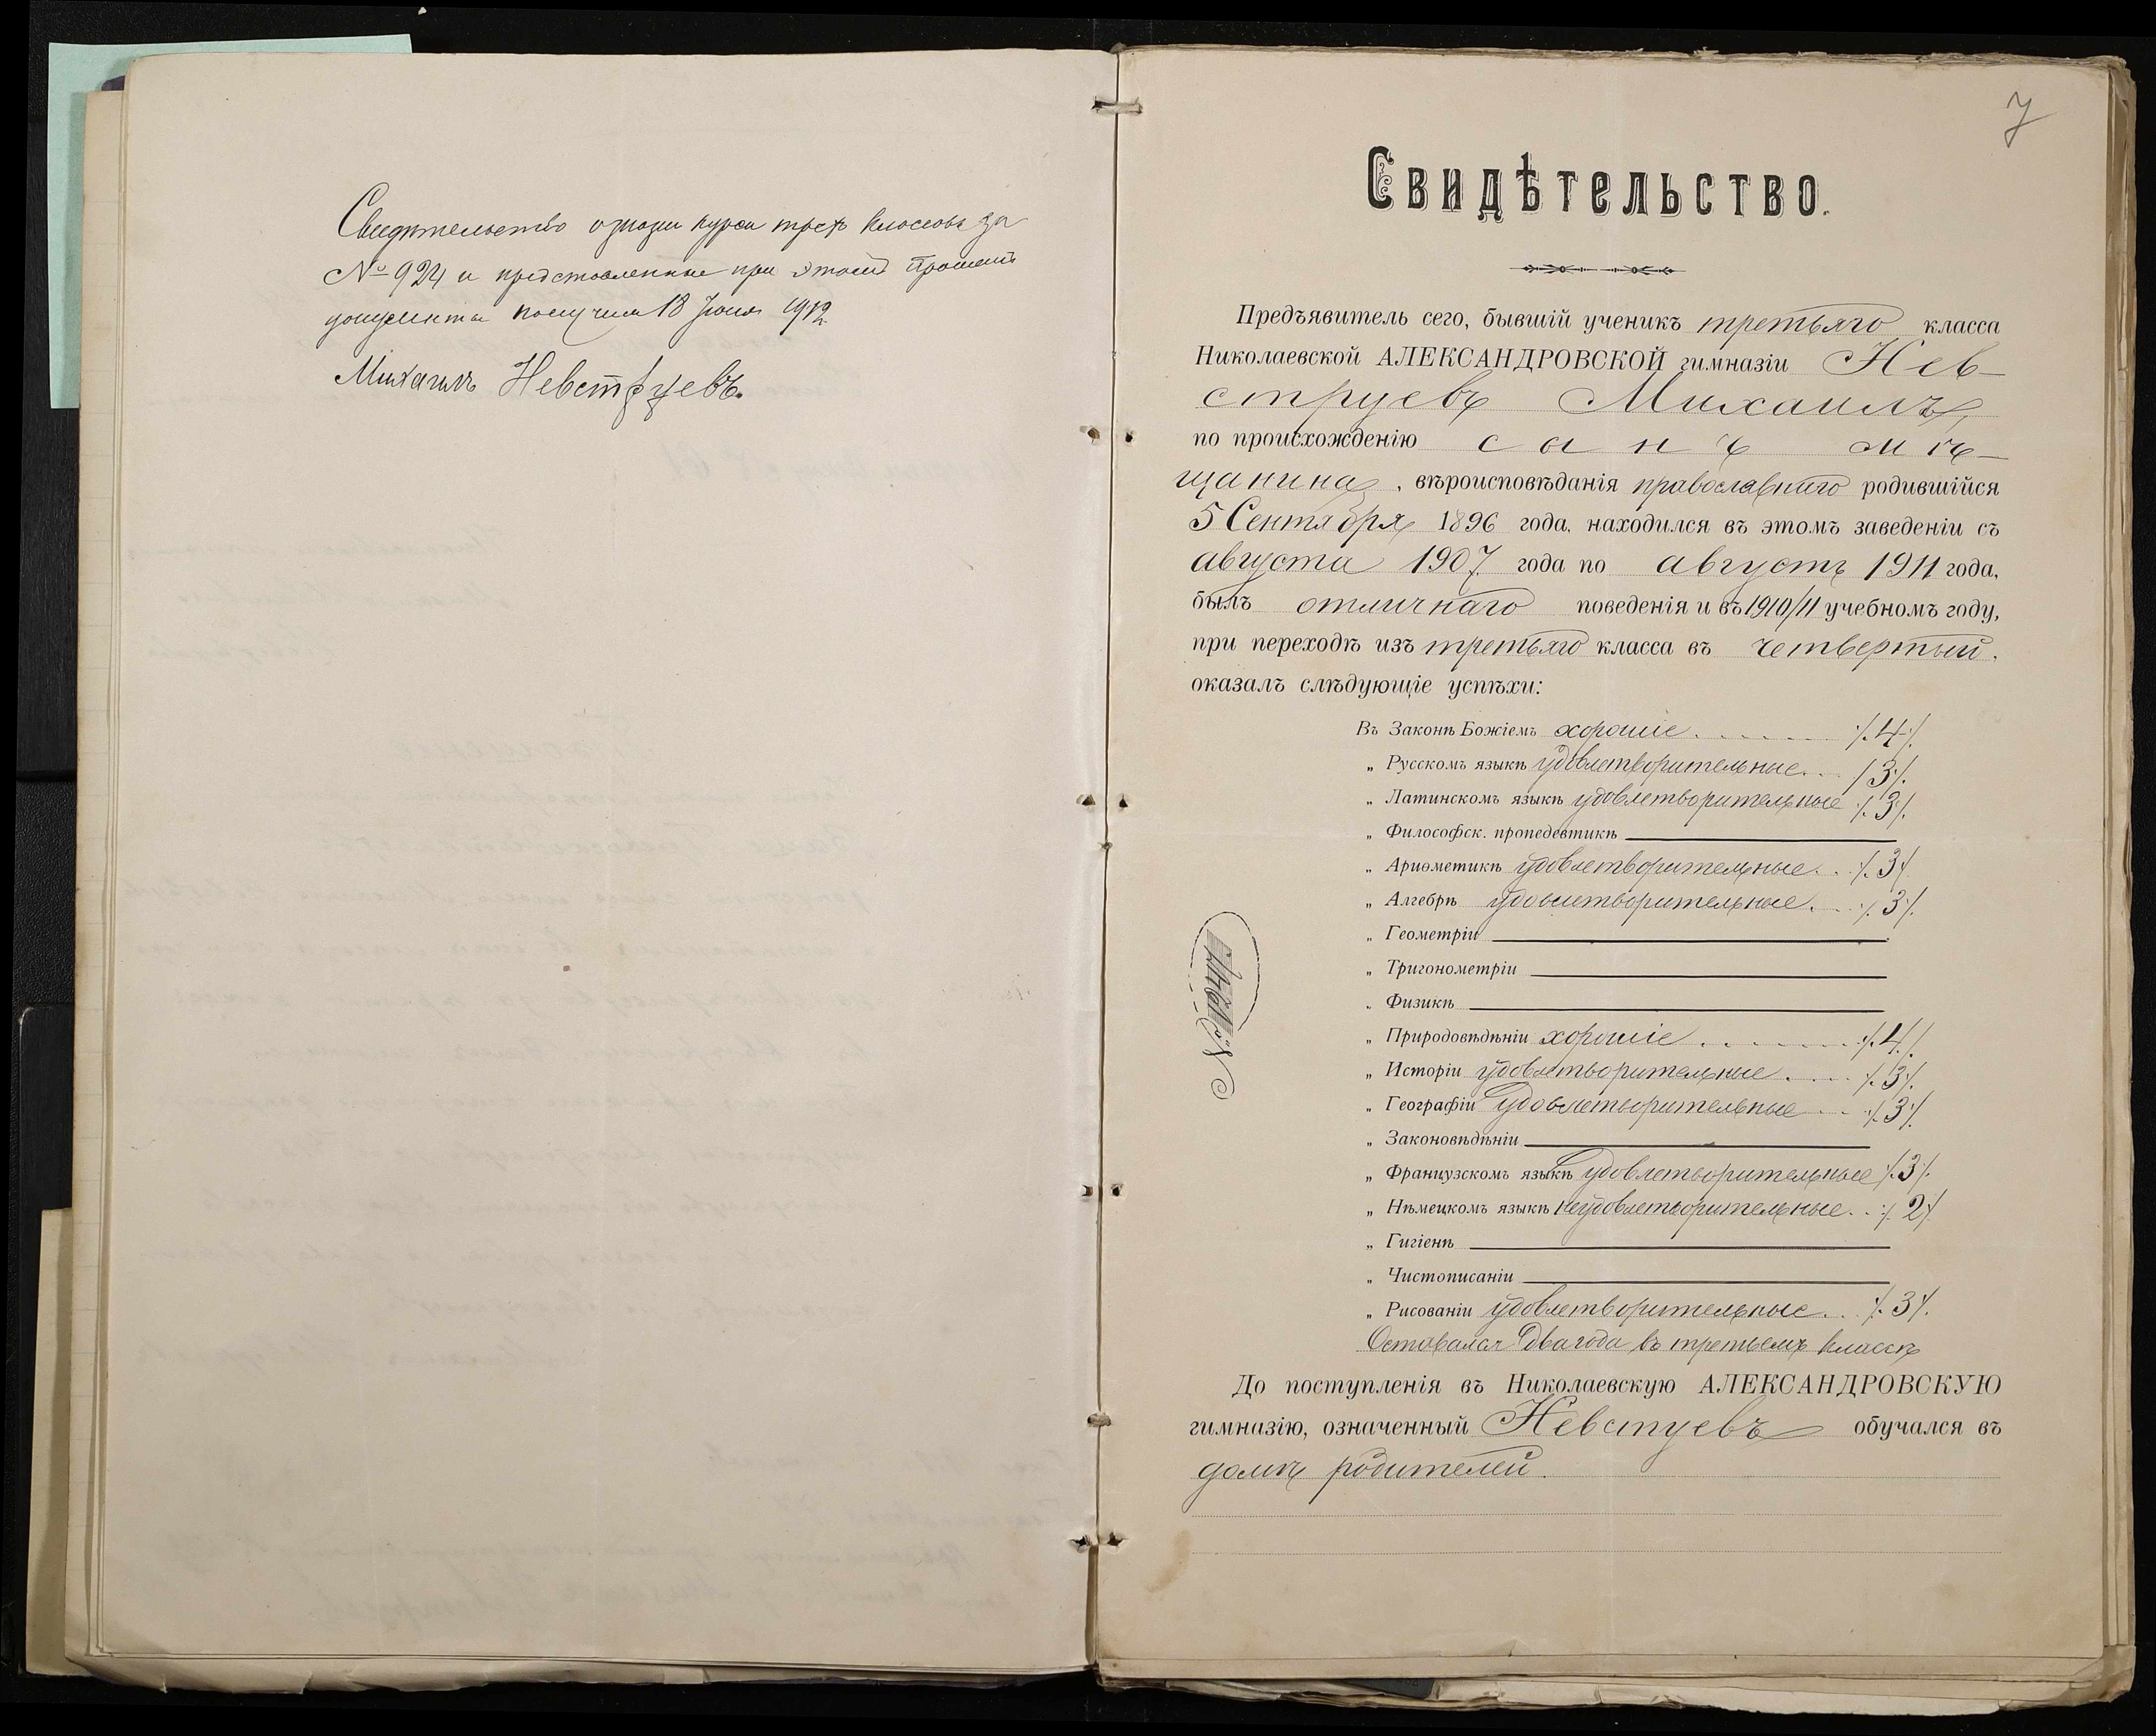 Свидѣтельство о знаніи курса трехъ классовъ за
№ 924 и представленные при этомъ прошеніи
документы получилъ 18 Іюня 1912
Михаилъ Невструевъ.
7
Свидѣтельство.
Предъявитель сего, бывшій ученикъ третьяго класса
Николаевской АЛЕКСАНДРОВСКОЙ гимназіи Нев-
струевъ Михаилъ,
по происхожденію сынъ мѣ-
щанина, вѣроисповѣданія православнаго родившійся
5 Сентября 1896 года, находился въ этомъ заведеніи съ
августа 1907 года по августъ 1911 года,
былъ отличнаго поведенія и въ 1910/11 учебномъ году,
при переходѣ изъ третьяго класса въ четвертый,
оказалъ слѣдующіе успѣхи:
Въ Законѣ Божіемъ хорошіе ......... ./.4./.
„ Русскомъ языкѣ удовлетворительные... ./.3./.
„ Латинскомъ языкѣ удовлетворительные ./.3./.
„ Философск. пропедевтикѣ
„ Ариѳметикѣ удовлетворительные... ./.3./.
„ Алгебрѣ удовлетворительные.... ./.3./.
„ Геометріи
„ Тригонометріи
„ Физикѣ
„ Природовѣдѣніи хорошіе ......... ./.4./.
„ Исторіи удовлетворительные..... ./.3./.
„ Географіи удовлетворительные.... ./.3./.
„ Законовѣдѣніи
„ Французскомъ языкѣ удовлетворительные ./.3./.
„ Нѣмецкомъ языкѣ неудовлетворительные.. ./.2./.
„ Гигіенѣ
„ Чистописаніи
„ Рисованіи удовлетворительные... ./.3./.
Оставался два года въ третьемъ классѣ
До поступленія въ Николаевскую АЛЕКСАНДРОВСКУЮ
гимназію, означенный Невструевъ обучался въ
домѣ родителей.